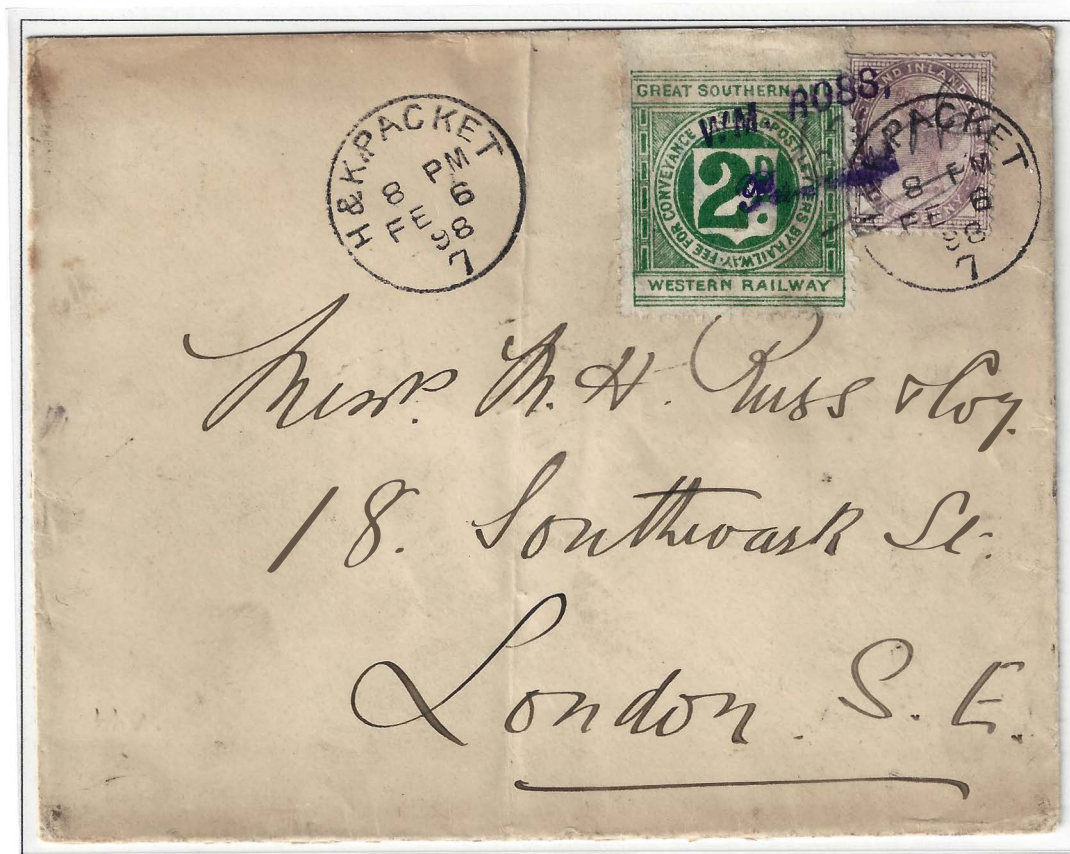 H&K.PACKET
8 PM
FE 6
98
7
GREAT SOUTHERN AND
FEE FOR CONVEYANCE OF SINGLE POST LETTERS BY RAILWAY.
2D.
WESTERN RAILWAY
WM ROSS.
AND INLAND
H&K.PACKET
8 PM
FE 6
98
7
Messrs. W. H. Russ & Coy.
18. Southwark St.
London. S. E.